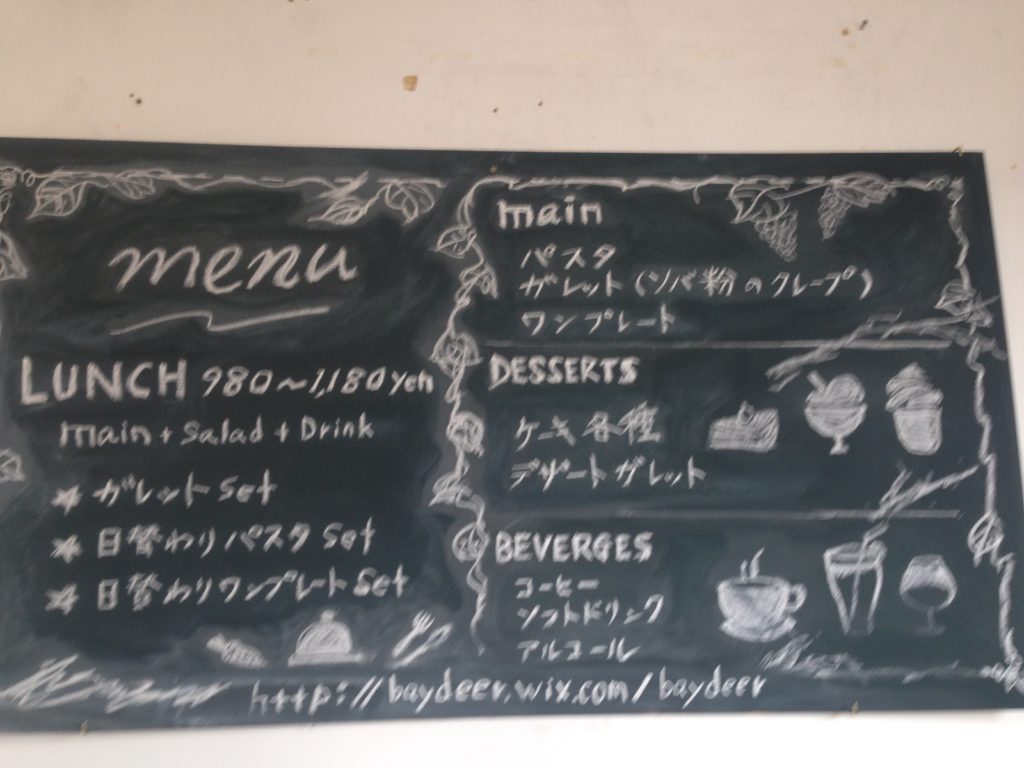 menu
LUNCH 980～1,180yen
main + Salad + Drink
★ ガレット Set
★ 日替わりパスタ Set
★ 日替わりワンプレート Set
main
パスタ
ガレット（ソバ粉のクレープ）
ワンプレート
DESSERTS
ケーキ各種
デザートガレット
BEVERGES
コーヒー
ソフトドリンク
アルコール
http://baydeer.wix.com/baydeer